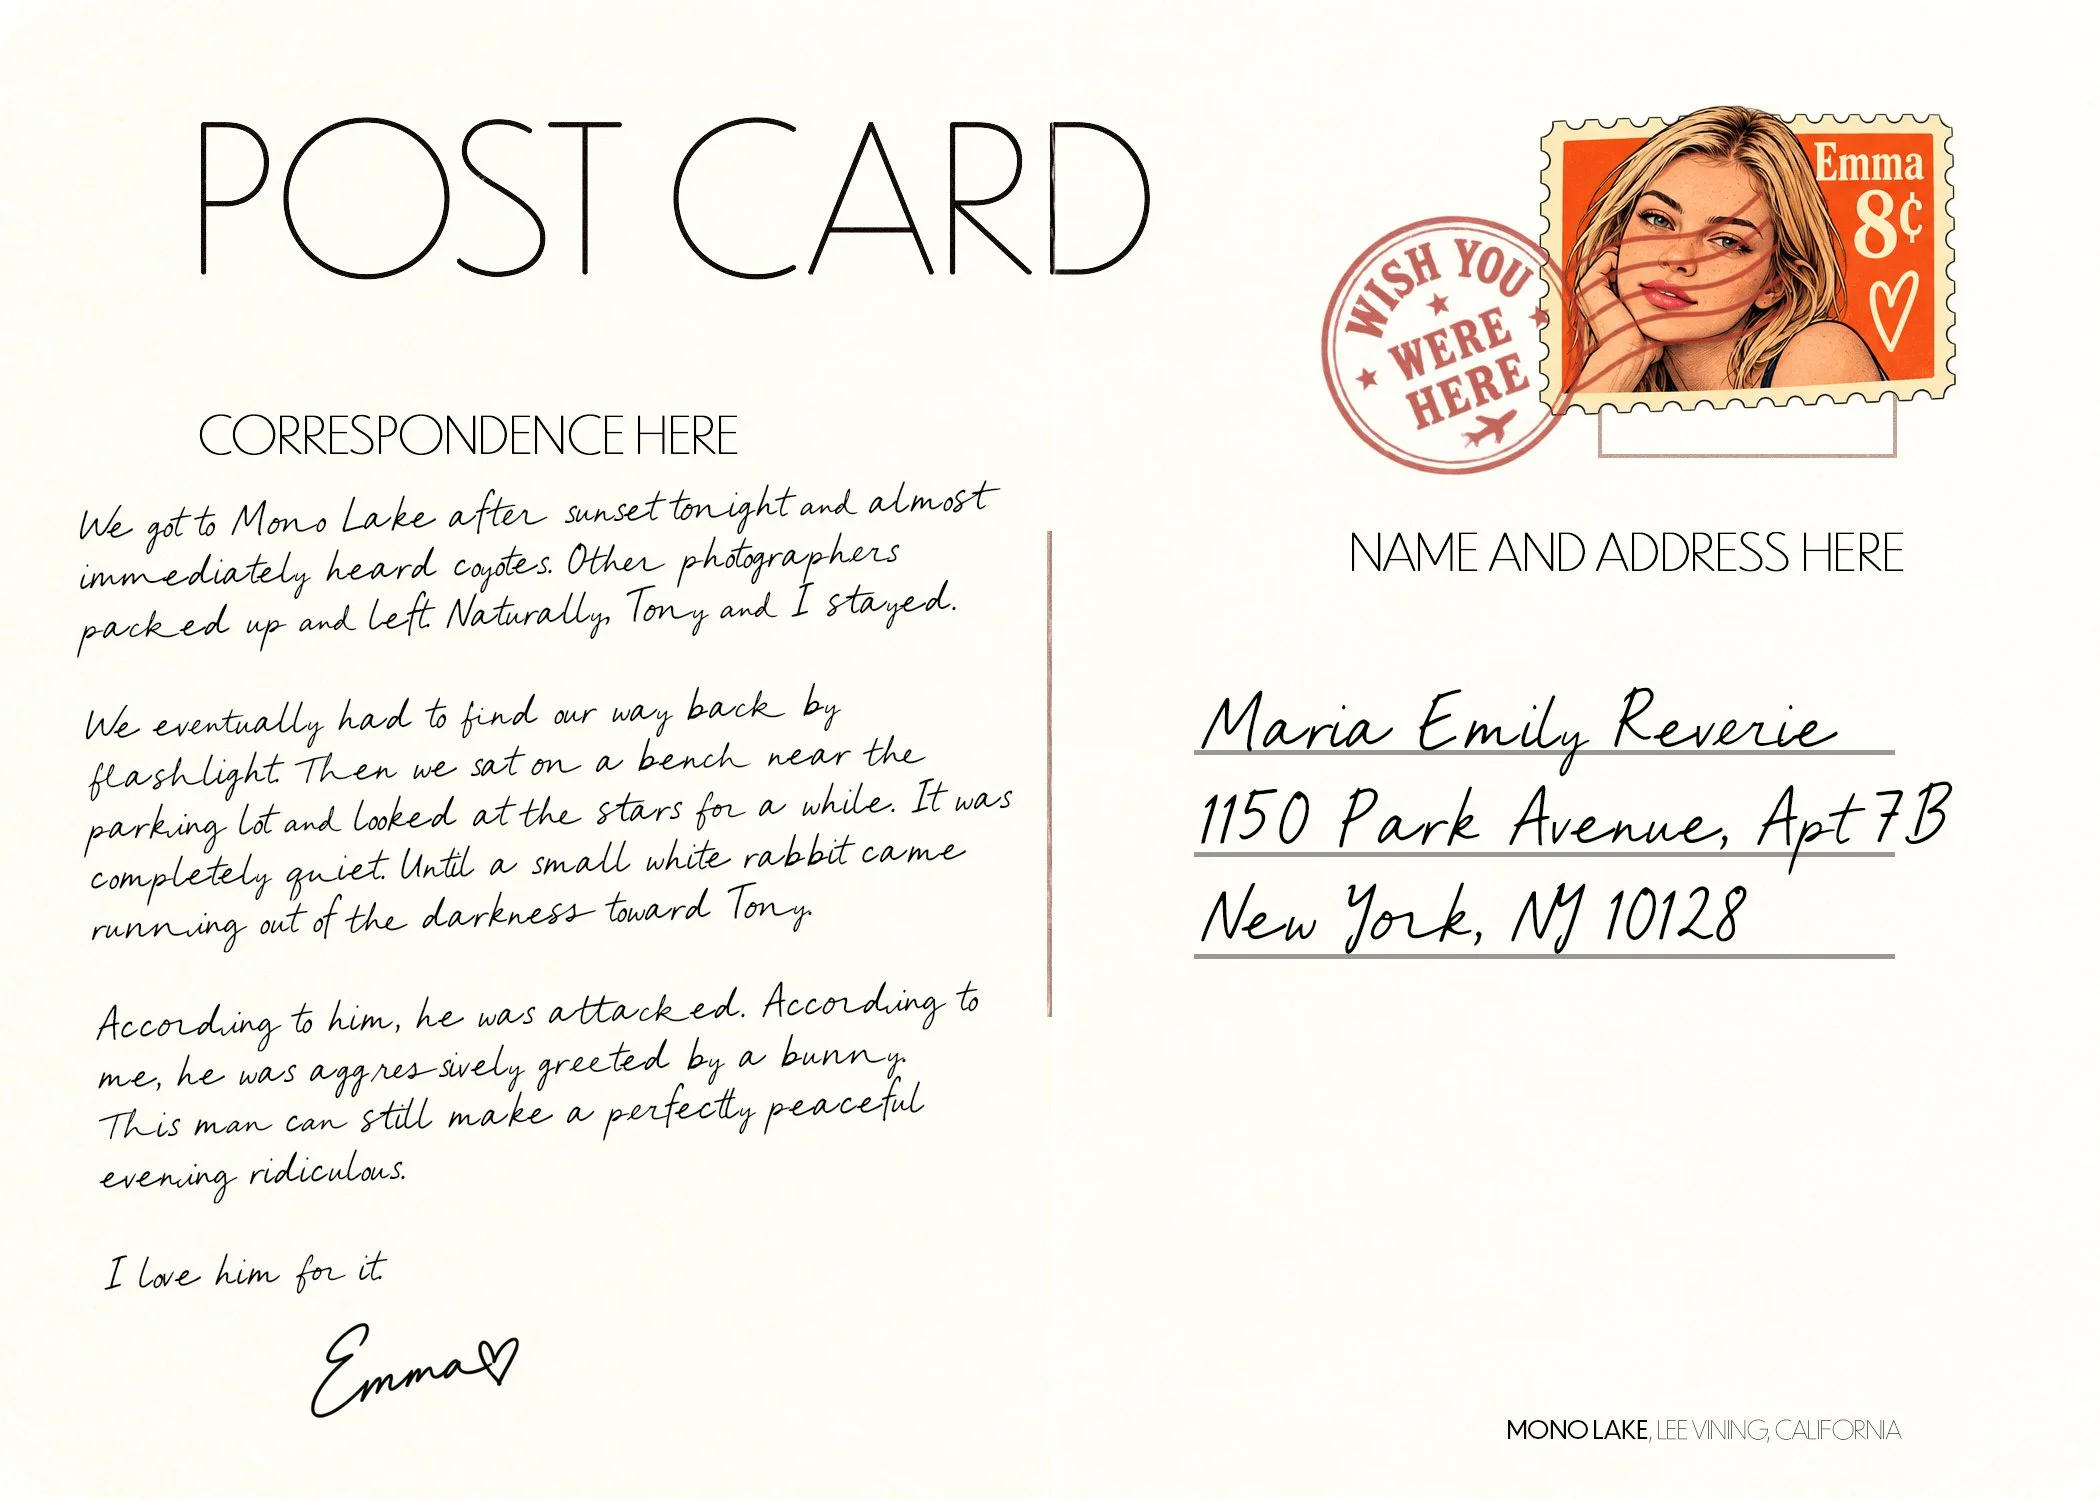 POST CARD
Emma
8¢
WISH YOU
WERE
HERE
CORRESPONDENCE HERE
We got to Mono Lake after sunset tonight and almost
immediately heard coyotes. Other photographers
packed up and left. Naturally, Tony and I stayed.
We eventually had to find our way back by
flashlight. Then we sat on a bench near the
parking lot and looked at the stars for a while. It was
completely quiet. Until a small white rabbit came
running out of the darkness toward Tony.
According to him, he was attacked. According to
me, he was aggressively greeted by a bunny.
This man can still make a perfectly peaceful
evening ridiculous.
I love him for it.
Emma
NAME AND ADDRESS HERE
Maria Emily Reverie
1150 Park Avenue, Apt 7B
New York, NY 10128
MONO LAKE, LEE VINING, CALIFORNIA